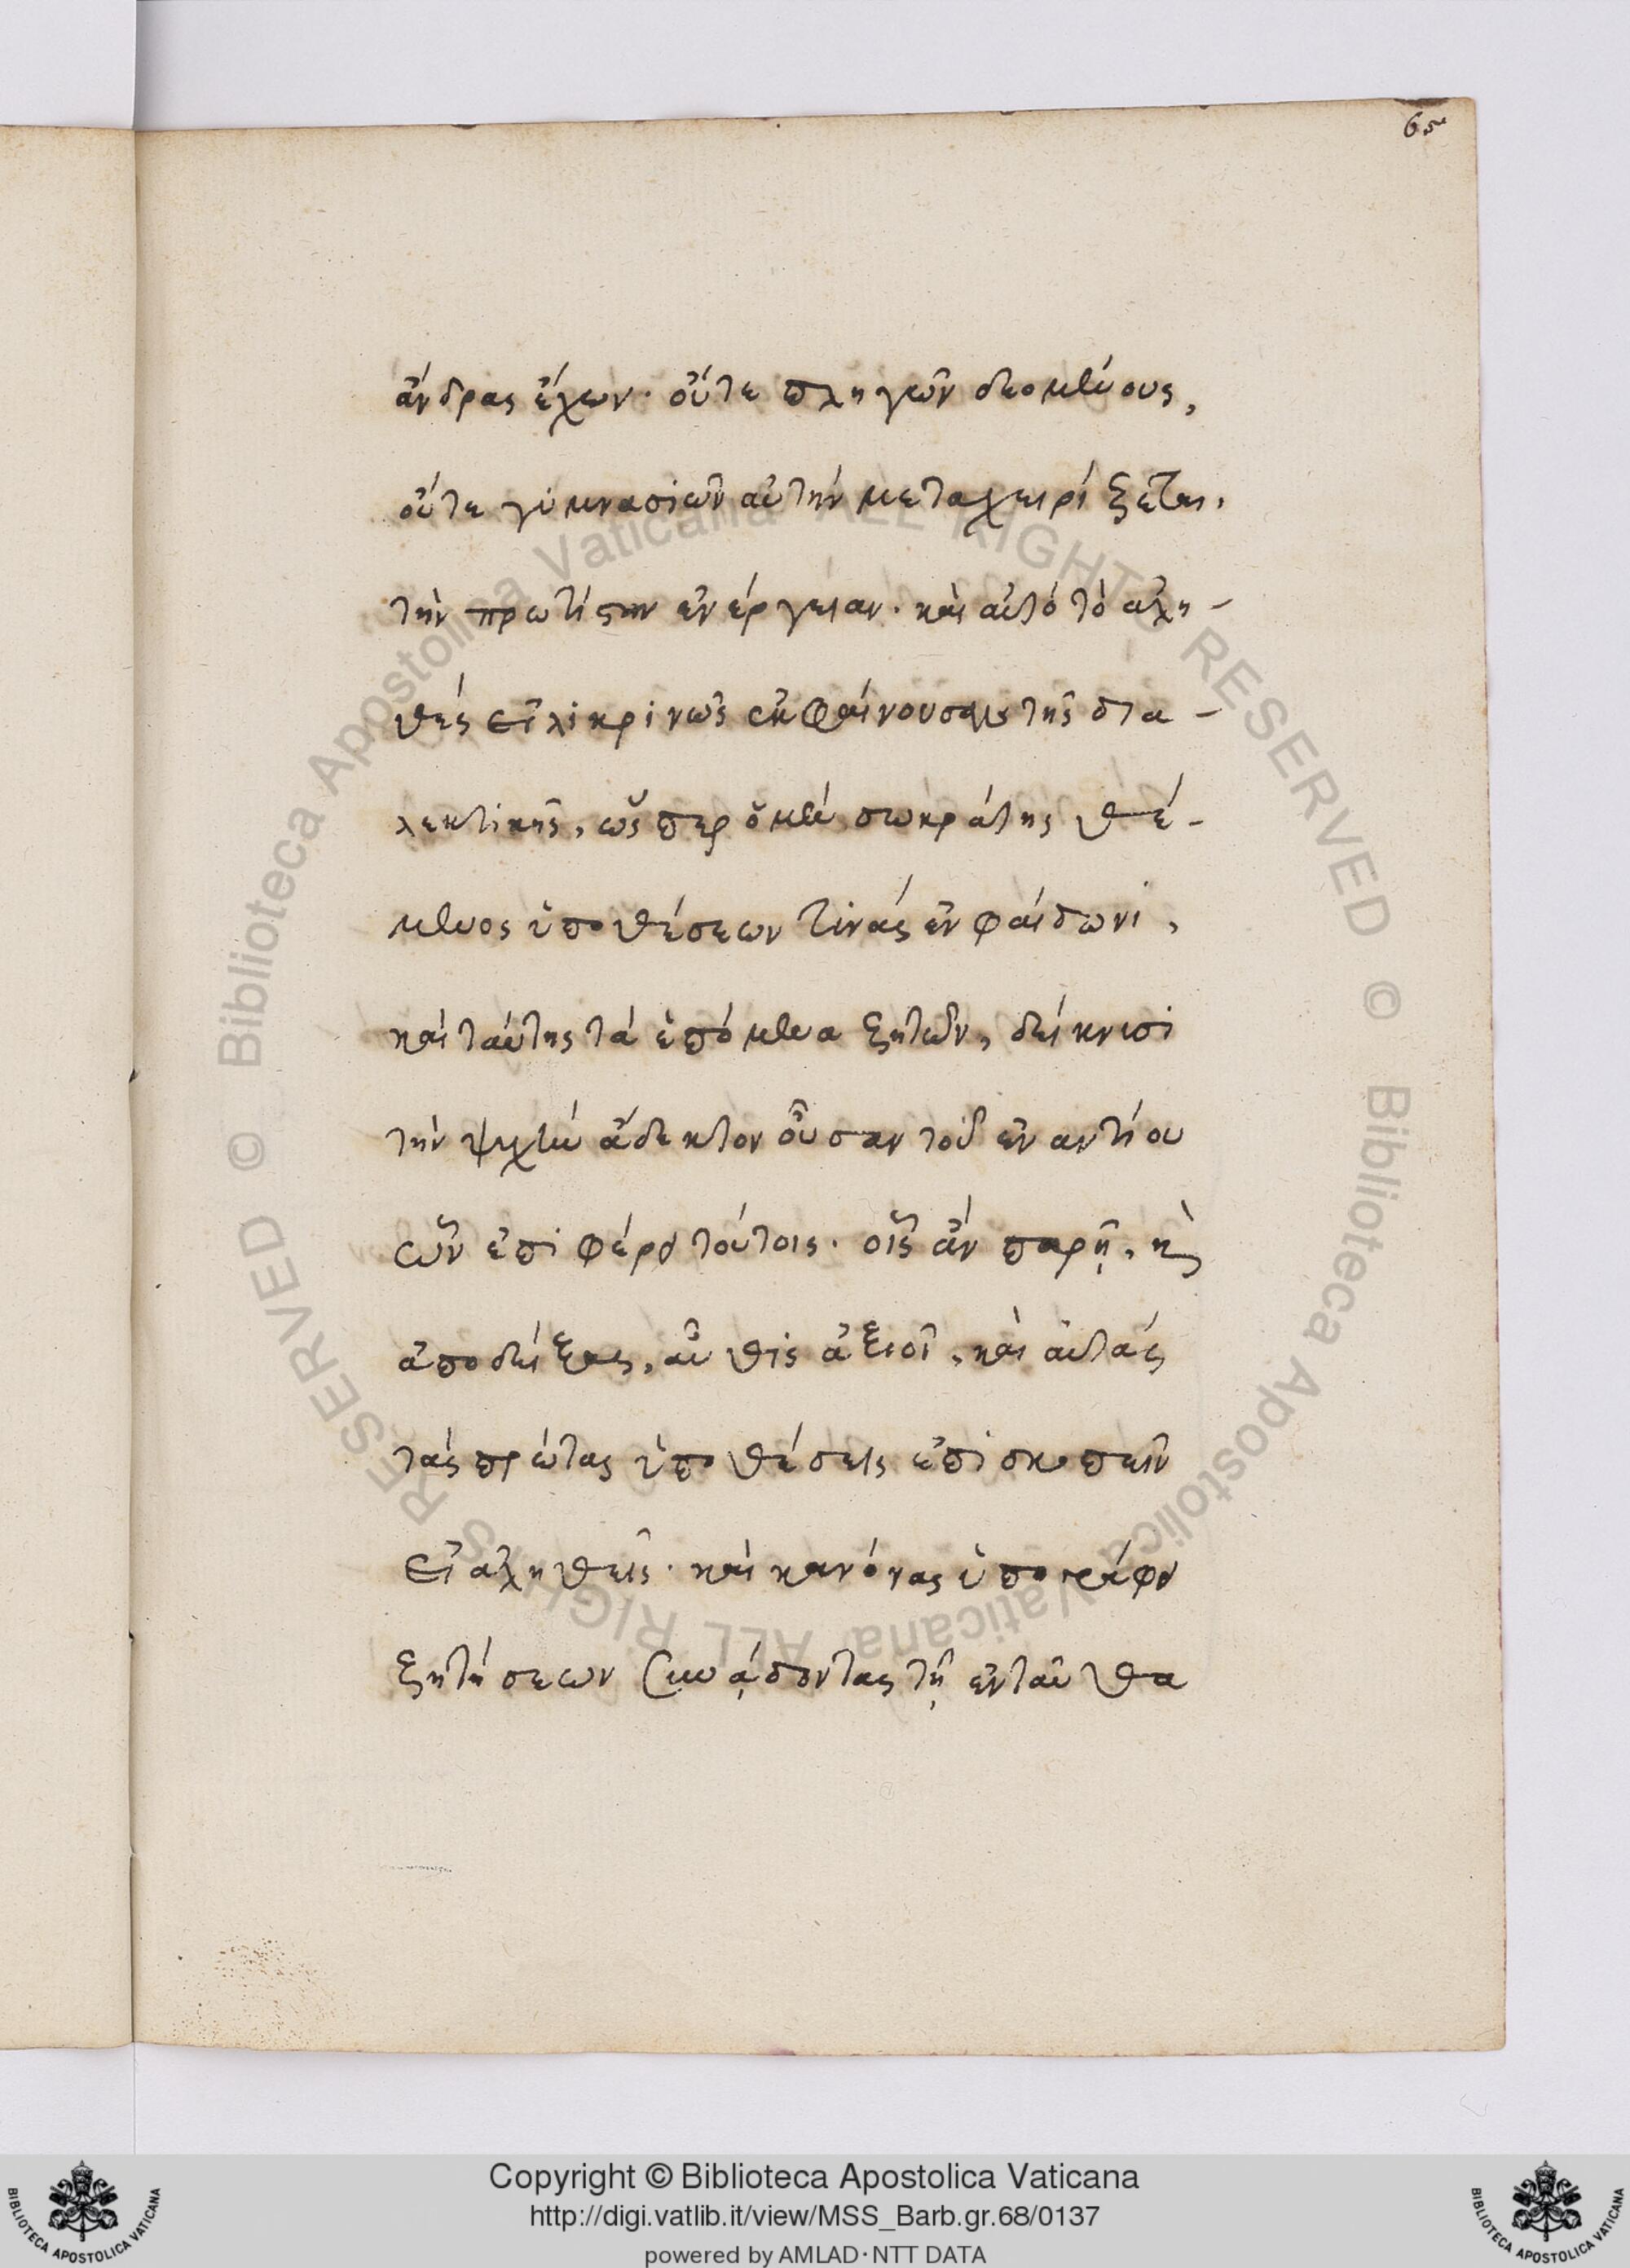 65
ἄνδρας ἔχων· οὔτε πληγῶν δεομένους,
οὔτε γυμνασιῶν αὐτὴν μεταχειρίζεται,
τὴν πρωτίστην ἐνέργειαν· καὶ αὐτὸ τὸ ἀλη-
θὲς εἰλικρινῶς ἐκφαίνουσαν τῆς δια-
λεκτικῆς, ὥσπερ ὁ μὲν σωκράτης θέ-
μενος ὑποθέσεων τινὰς ἐν φαίδωνι,
καὶ ταύτης τὰ ἑπόμενα ζητῶν, δείκνυσι
τὴν ψυχὴν ἄδεκτον οὖσαν τοῦ ἐναντίου
ὧν ἐπιφέρει τούτοις· οἷς ἂν παρῇ, καὶ
ἀποδείξας, αὖθις ἀξιοῖ, καὶ αὐτὰς
τὰς πρώτας ὑποθέσεις ἐπισκοπεῖν
εἰ ἀληθεῖς· καὶ κανόνας ὑπογράφει
ζητήσεων συνᾴδοντας τῇ ἐνταῦθα
Biblioteca Apostolica Vaticana ALL RIGHTS RESERVED ©
Biblioteca Apostolica Vaticana ALL RIGHTS RESERVED ©
Copyright © Biblioteca Apostolica Vaticana
http://digi.vatlib.it/view/MSS_Barb.gr.68/0137
powered by AMLAD·NTT DATA
BIBLIOTECA APOSTOLICA VATICANA
BIBLIOTECA APOSTOLICA VATICANA